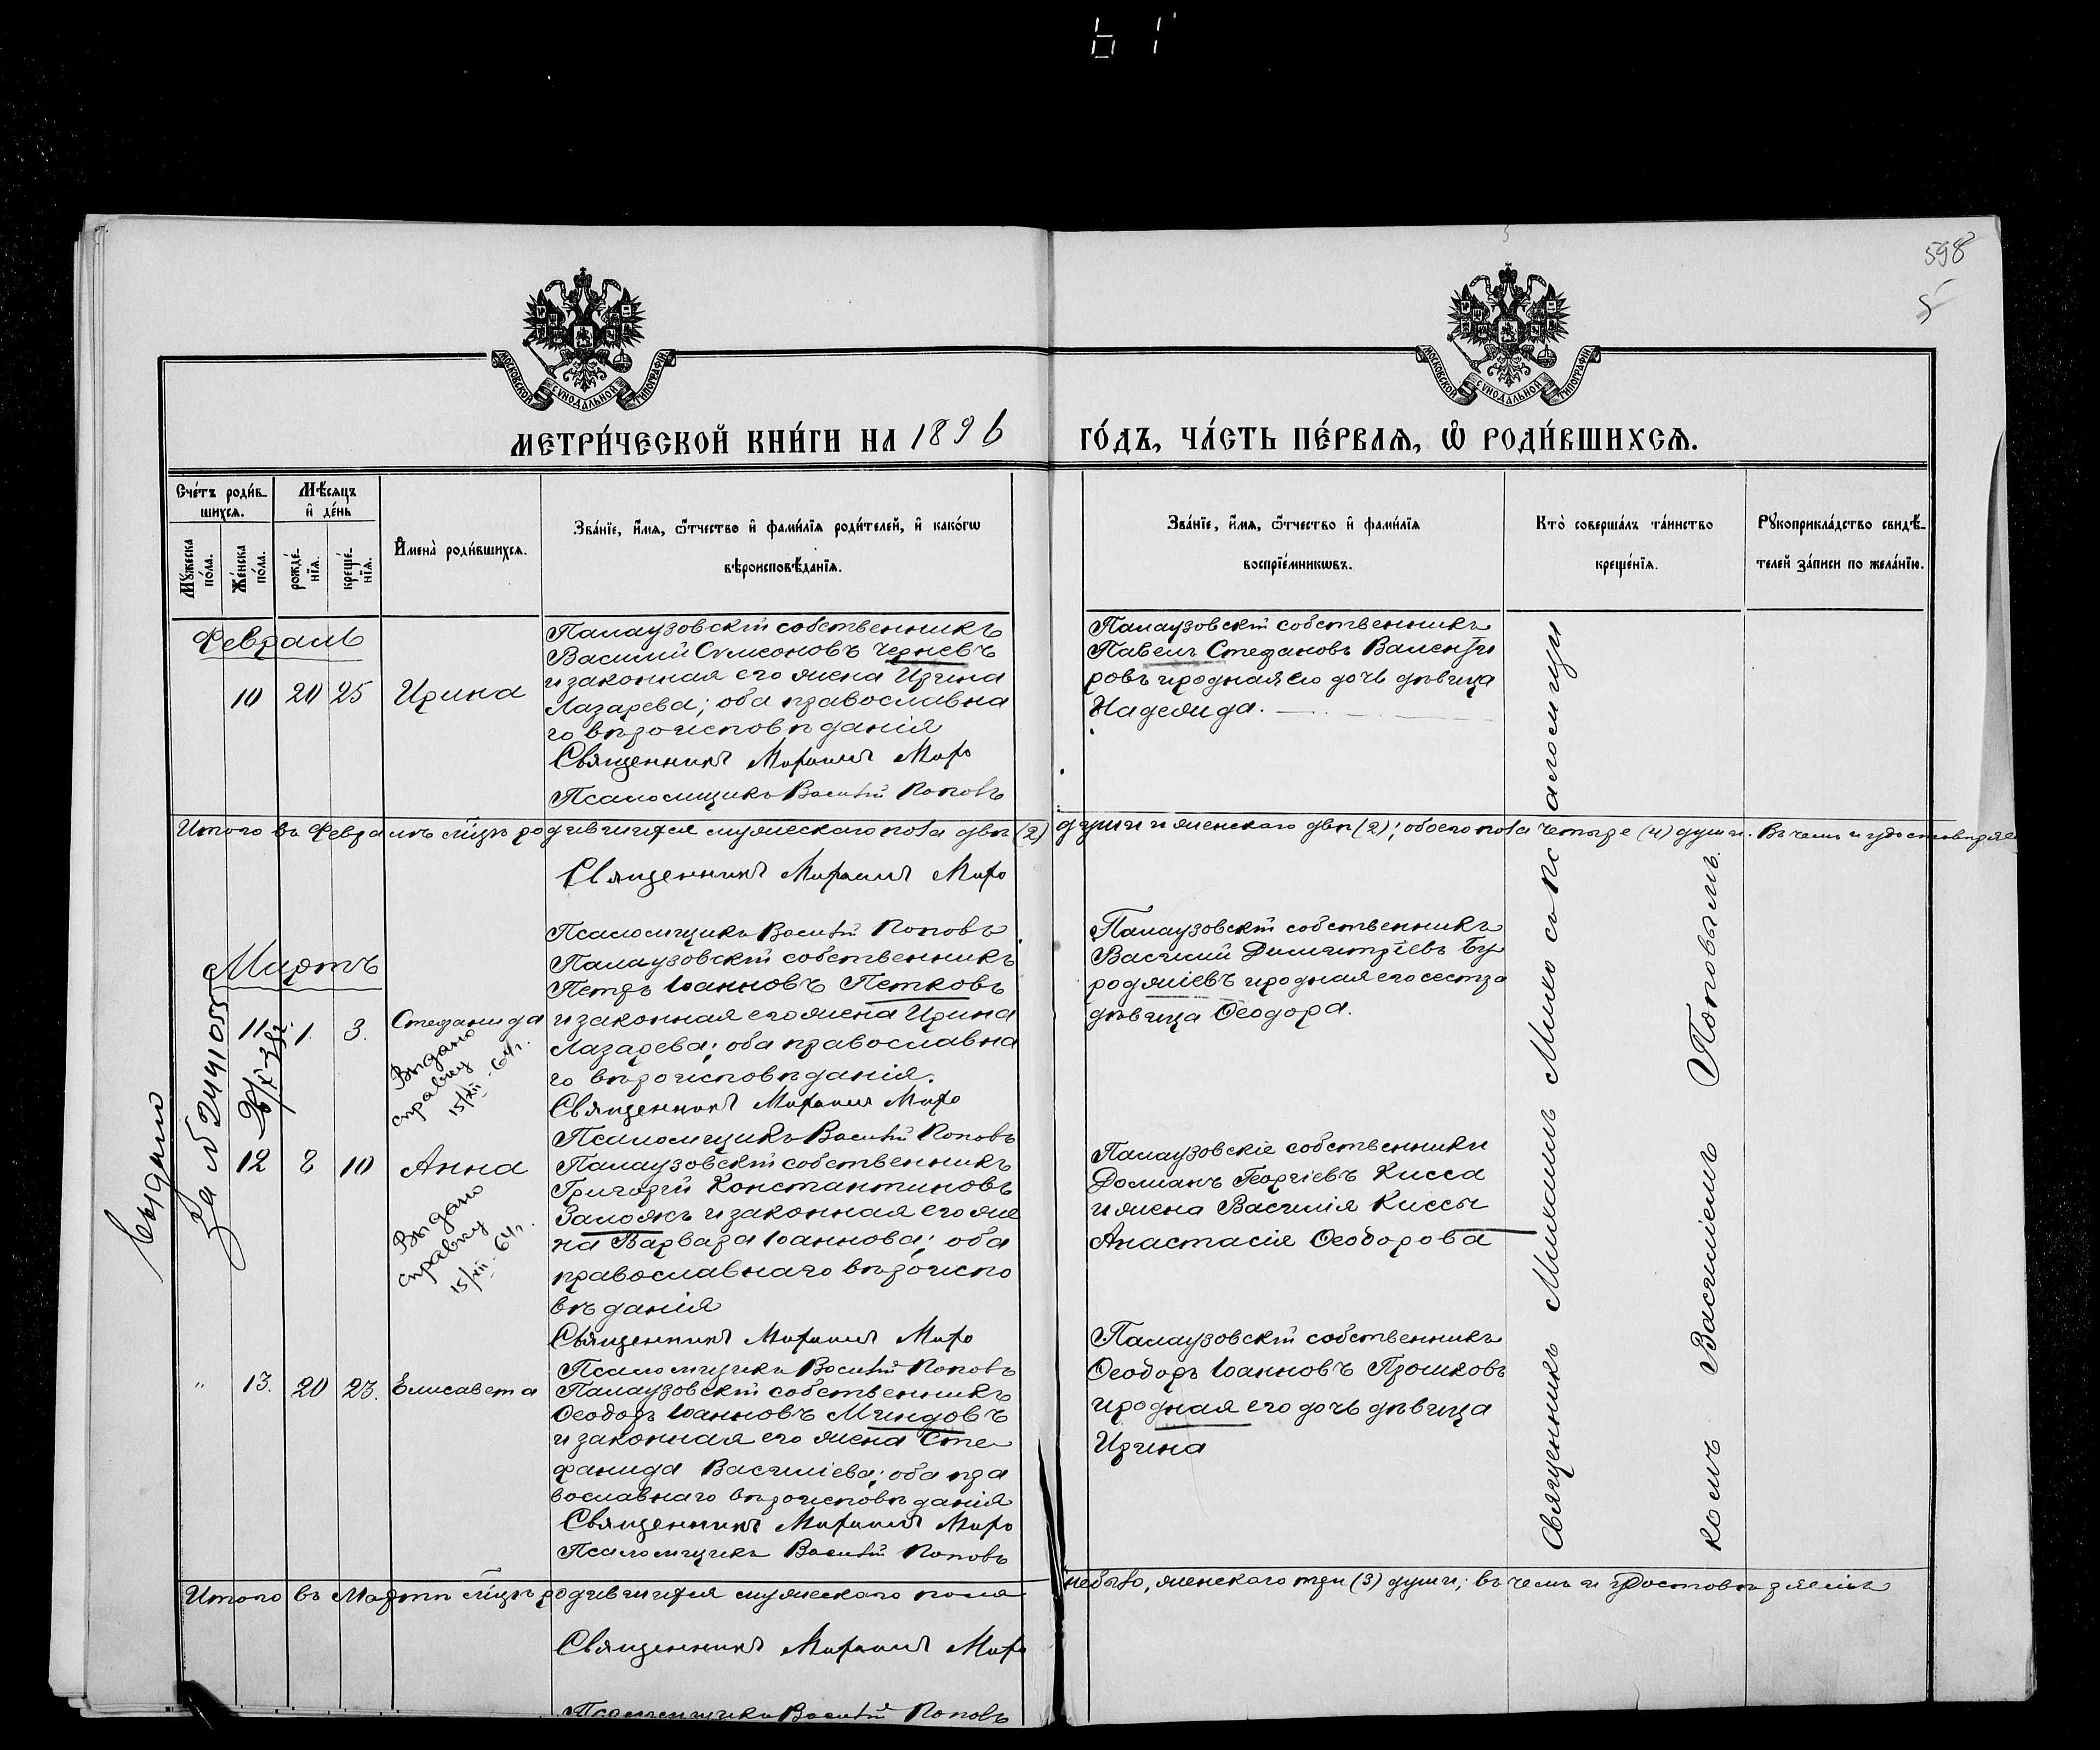 598
5
МОСКОВСКОЙ СѴНОДАЛЬНОЙ ТИПОГРАФІИ
МОСКОВСКОЙ СѴНОДАЛЬНОЙ ТИПОГРАФІИ
МЕТРИ́ЧЕСКОЙ КНИ́ГИ НА 1896 ГО́ДЪ, ЧА́СТЬ ПЕ́РВАѦ, Ѡ РОДИ́ВШИХСѦ.
Сче́тъ роди́в-
шихсѧ.
Мꙋжеска по́ла.
Же́нска по́ла.
Мѣ́сяцъ
и҆ де́нь
рожде́-
нїѧ.
креще́-
нїѧ.
И҆мена̀ роди́вшихсѧ.
Зва́нїе, и҆́мѧ, ѻ҆́тчество и҆ фами́лїѧ роди́телей, и҆ како́гѡ
вѣроисповѣ́данїѧ.
Зва́нїе, и҆́мѧ, ѻ҆́тчество и҆ фами́лїѧ
воспрїе́мникѡвъ.
Кто̀ соверша́лъ та́инство
креще́нїѧ.
Рꙋкоприкла́дство свидѣ́-
телей за́писи по жела́нїю.
Февраль
10 20 25 Ирина
Палаузовскій собственникъ
Василий Симеоновъ Черневъ
и законная его жена Ирина
Лазарева; оба православна
го вѣроисповѣданія
Священникъ Михаилъ Мито
Псаломщикъ Василій Поповъ
Палаузовскій собственникъ
Павелъ Стефановъ
ровъ и родная его дочь дѣвица
Надежда.
Итого въ Февралѣ мѣсяцѣ родившихся мужескаго пола двѣ (2) души и женскаго двѣ (2); обоего пола четыре (4) души. Въ чемъ и удостовѣряе
Священникъ Михаилъ Мито
Псаломщикъ Василій Поповъ
Мартъ
11. 1. 3. Стефанида
Выдано
справку
15/XII - 64г.
Палаузовскій собственникъ
Петръ Іоанновъ Петковъ
и законная его жена Ирина
Лазарева; оба православна
го вѣроисповѣданія.
Священникъ Михаилъ Мито
Псаломщикъ Василій Поповъ
Палаузовскій собственникъ
Василий Димитріевъ Бу
роджіевъ и родная его сестра
дѣвица Ѳеодора.
Выдано
за № 2441055
12 8 10 Анна
Выдано
справку
15/XII - 64г.
Палаузовскій собственникъ
Григорій Константиновъ
Заможъ и законная его же
на Варвара Іоаннова; оба
православнаго вѣроиспо
вѣданія
Священникъ Михаилъ Мито
Псаломщикъ Василій Поповъ
Палаузовскіе собственники
Доміанъ Георгіевъ Кисса
и жена Василія Киссы
Анастасія Ѳеодорова
" 13. 20 23. Елисавета
Палаузовскій собственникъ
Ѳеодоръ Іоанновъ Миндовъ
и законная его жена Сте
фанида Василіева; оба пра
вославнаго вѣроисповѣданія
Священникъ Михаилъ Мито
Псаломщикъ Василій Поповъ
Палаузовскій собственникъ
Ѳеодоръ Іоанновъ Прошковъ
и родная его дочь дѣвица
Ирина
Священникъ Михаилъ Мито съ псаломщи
комъ Василіемъ Поповымъ.
Итого въ Мартѣ мѣсяцѣ родившихся мужескаго пола небыло, женскаго три (3) души; въ чемъ и удостовѣряемъ
Священникъ Михаилъ Мито
Псаломщикъ Василій Поповъ